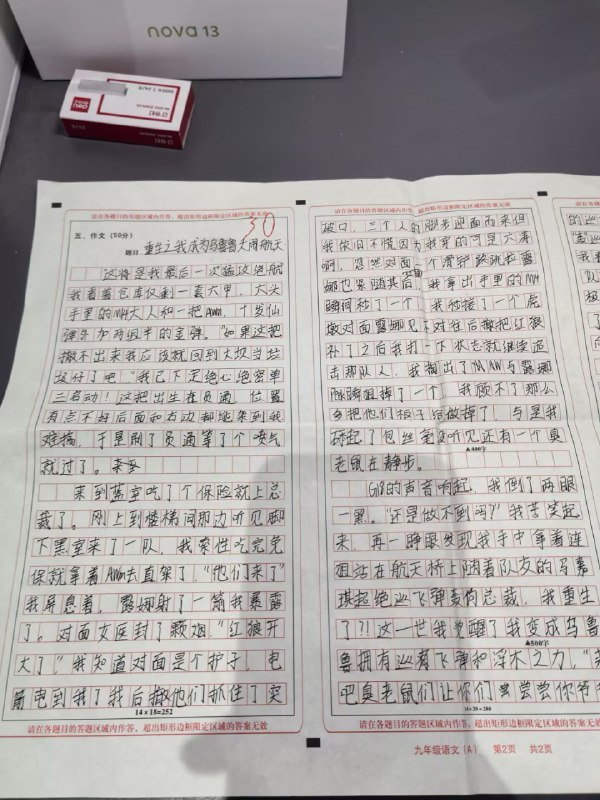 nova 13
deli
请在各题目的答题区域内作答，超出矩形边框限定区域的答案无效
五、作文（50分）
30
题目 重生之我成为乌鲁鲁大闹航天
这将是我最后一次猛攻绝航
我看着仓库仅剩一套六甲，大头
手里的M4大人和一把AWM，十发仙
弹东加两组半的金弹。"如果这把
撤不出来我应该就回到大坝当垃
圾佬了吧。"我已下定绝心绝密单
三启动！这把出生在员通，位置
有点不好后面和右动都能来到我
难搞，于是刷了员通等了个喷气
就过了。
来到蓝室吃了个保险就上总
裁了。刚上到楼梯间那边听见脚
下黑室来了一队，我索性吃完免
保就拿着AWM去直架了，"他们来了"
我屏息着，露娜射了一箭我暴露
了。对面女医封了颗烟"红狼开
大了，"我知道对面是个护子，电
箭电到我了我后撤他们抓住了突
14×18=252
请在各题目的答题区域内作答，超出矩形边框限定区域的答案无效
请在各题目的答题区域内作答，超出矩形边框限定区域的答案无效
破口，三个人的脚步迎面而来但
我依旧不慌因为我穿的可是六寿
啊，忽然对面一个滑铲路跳拉露
娜也紧随其后，我拿出手里的M4
瞬间秒了一个，我秒接了一个虎
蹲对面露娜见了对住后撤把红狼
补了之后我打一下状态就继续追
击那队人，我掏出了AWM与露娜
瞬狙掉了一个，我顾不了那么
多把他们板子给做掉了，与是我
舔起了包丝毫没听见还有一个臭
▲400字
老鼠在静步。
G18的声音响起，我倒了两眼
一黑。"还是做不到吗？"我苦笑起
来，再一睁眼发现我手中拿着连
狙站在航天桥上随着队友的马嘉
祺起绝巡飞弹轰向总裁，我重生
了?!这一世我觉醒了我变成乌鲁
▲500字
鲁拥有巡着飞弹和浮木之力，
吧臭老鼠们让你们尝尝你爷爷
请在各题目的答题区域内作答，超出矩形边框限定区域的答案无效
九年级语文（A） 第2页 共2页
请在各
的巡